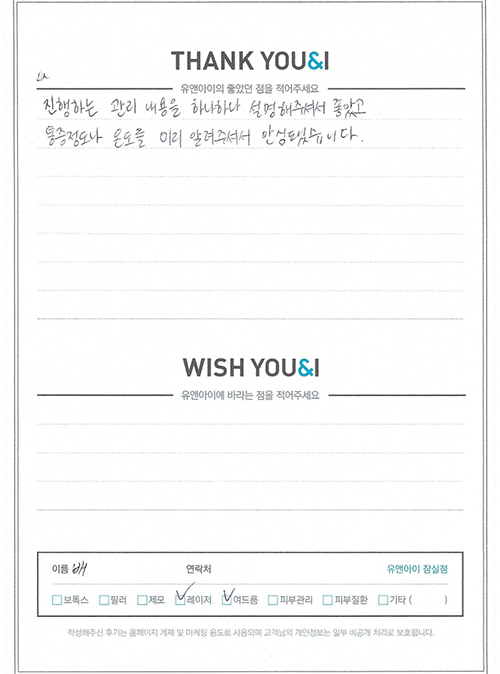 THANK YOU&I
유앤아이의 좋았던 점을 적어주세요
진행하는 관리 내용을 하나하나 설명해주셔서 좋았고
통증정도나 온도를 미리 알려주셔서 안심됐습니다.
WISH YOU&I
유앤아이에 바라는 점을 적어주세요
이름 배 연락처 유앤아이 잠실점
보톡스 필러 제모 레이저 여드름 피부관리 피부질환 기타 ( )
작성해주신 후기는 홈페이지 게재 및 마케팅 용도로 사용되며 고객님의 개인정보는 일부 비공개 처리로 보호됩니다.